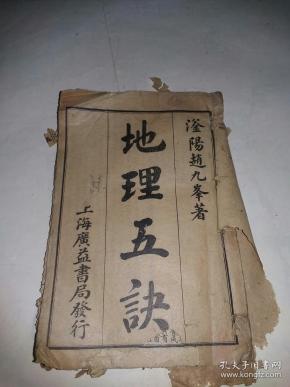 滏陽趙九峯著
地理五訣
上海廣益書局發行
孔夫子旧书网